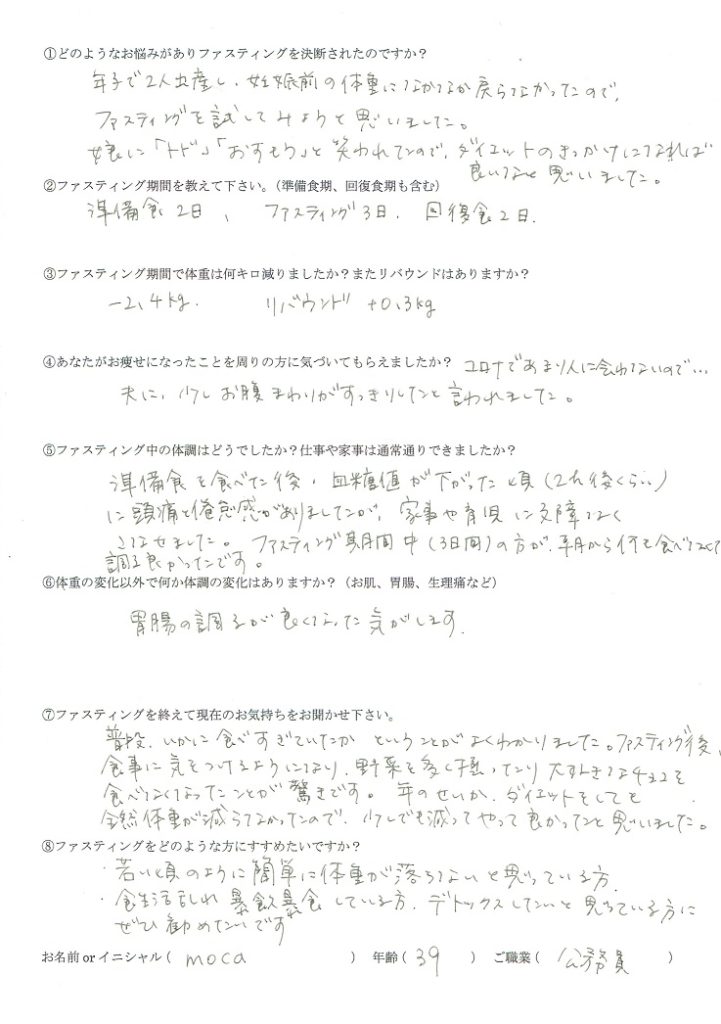 ①どのようなお悩みがありファスティングを決断されたのですか？
年子で2人出産し、妊娠前の体重になかなか戻らなかったので、
ファスティングを試してみようと思いました。
娘に「トド」「おすもう」と笑われてたので、ダイエットのきっかけになれば
良いなと思いました。
②ファスティング期間を教えて下さい。（準備食期、回復食期も含む）
準備食2日、ファスティング3日、回復食2日.
③ファスティング期間で体重は何キロ減りましたか？またリバウンドはありますか？
－2.4kg. リバウンド +0.3kg
④あなたがお痩せになったことを周りの方に気づいてもらえましたか？ コロナであまり人に会わないので…
夫に、少しお腹まわりがすっきりしたと言われました。
⑤ファスティング中の体調はどうでしたか？仕事や家事は通常通りできましたか？
準備食を食べた後、血糖値が下がった頃（2h後くらい）
に頭痛と倦怠感がありましたが、家事や育児に支障なく
こなせました。ファスティング期間中（3日間）の方が、朝から何も食べなくて
調子良かったです。
⑥体重の変化以外で何か体調の変化はありますか？（お肌、胃腸、生理痛など）
胃腸の調子が良くなった気がします.
⑦ファスティングを終えて現在のお気持ちをお聞かせ下さい。
普段、いかに食べすぎていたかということがよくわかりました。ファスティング後、
食事に気をつけるようになり、野菜を多く摂ったり大好きなチョコを
食べなくなったことが驚きです。年のせいか、ダイエットをしても
全然体重が減らなかったので、少しでも減ってやって良かったと思いました。
⑧ファスティングをどのような方にすすめたいですか？
・若い頃のように簡単に体重が落ちないと思っている方.
・食生活乱れ暴飲暴食している方、デトックスしたいと思っている方に
ぜひ勧めたいです
お名前 or イニシャル（ moca ） 年齢（ 39 ） ご職業（ 公務員 ）